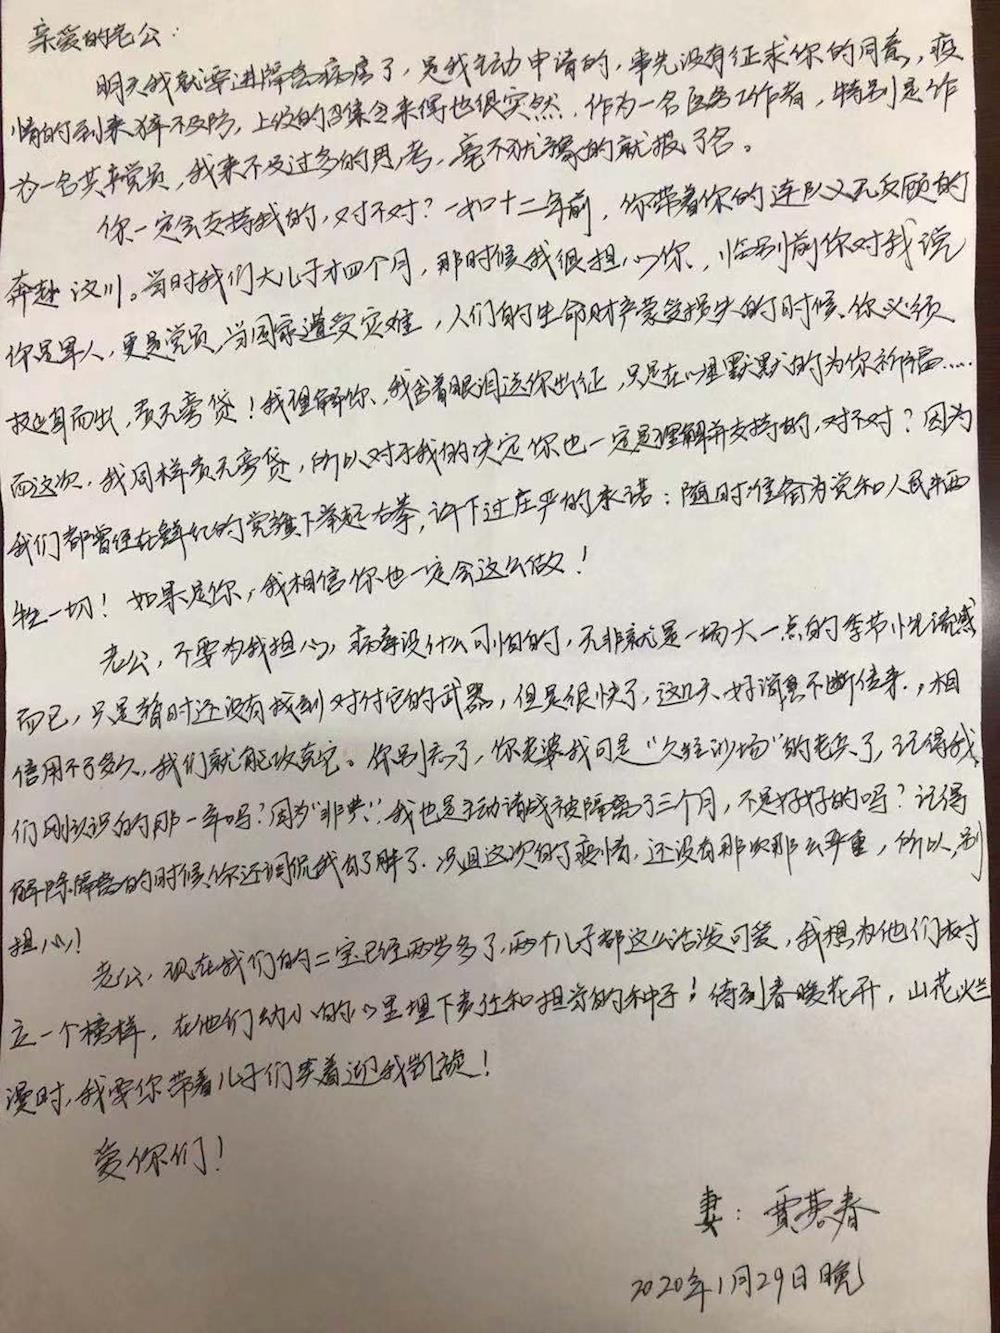 亲爱的老公：
明天我就要进隔离病房了，是我主动申请的，事先没有征求你的同意，疫
情的到来猝不及防，上级的召集令来得也很突然，作为一名医务工作者，特别是作
为一名共产党员，我来不及过多的思考，毫不犹豫的就报了名。
你一定会支持我的，对不对？一如十二年前，你带着你的连队义无反顾的
奔赴汶川。当时我们大儿子才四个月，那时候我很担心你，临别前你对我说
你是军人，更是党员，当国家遭受灾难，人们的生命财产蒙受损失的时候，你必须
挺身而出，责无旁贷！我理解你，我含着眼泪送你出征，只是在心里默默的为你祈福……
而这次，我同样责无旁贷，所以对于我的决定你也一定是理解并支持的，对不对？因为
我们都曾经在鲜红的党旗下举起右拳，许下过庄严的承诺：随时准备为党和人民牺
牲一切！如果是你，我相信你也一定会这么做！
老公，不要为我担心，病毒没什么可怕的，无非就是一场大一点的季节性流感
而已，只是暂时还没有找到对付它的武器，但是很快了，这几天好消息不断传来，相
信用不了多久，我们就能攻克它。你别忘了，你老婆我可是“久经沙场”的老兵了，记得我
们刚认识的那一年吗？因为“非典”，我也是主动请战被隔离了三个月，不是好好的吗？记得
解除隔离的时候，你还调侃我白了胖了。况且这次的疫情，还没有那次那么严重，所以，别
担心！
老公，现在我们的二宝已经两岁多了，两个儿子都这么活泼可爱，我想为他们树
立一个榜样，在他们幼小的心里埋下责任和担当的种子！待到春暖花开，山花烂
漫时，我要你带着儿子们笑着迎我凯旋！
爱你们！
妻：贾春
2020年1月29日晚